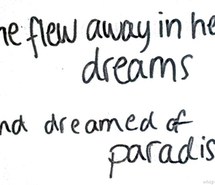 he flew away in he
dreams
nd dreamed of
paradis